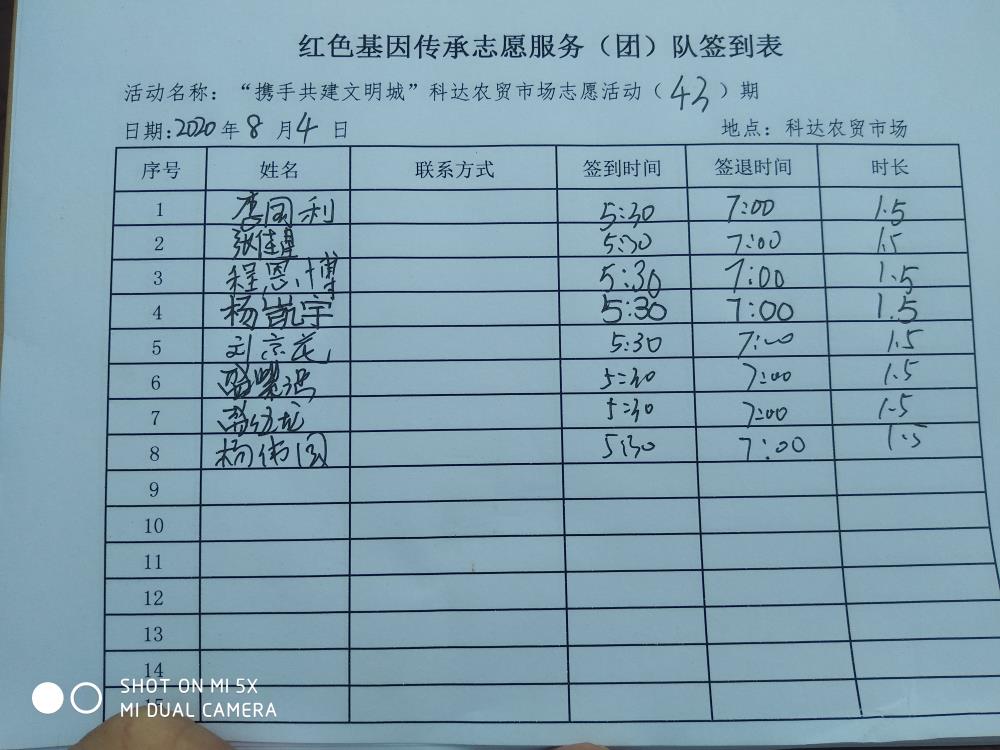 红色基因传承志愿服务（团）队签到表
活动名称：“携手共建文明城”科达农贸市场志愿活动（43）期
日期:2020年8月4日 地点：科达农贸市场
序号 姓名 联系方式 签到时间 签退时间 时长
1 李国利 5:30 7:00 1.5
2 张佳 5:30 7:00 1.5
3 程恩博 5:30 7:00 1.5
4 杨凯宇 5:30 7:00 1.5
5 刘京花 5:30 7:00 1.5
6 5:30 7:00 1.5
7 5:30 7:00 1.5
8 杨伟国 5:30 7:00 1.5
9
10
11
12
13
14
15
SHOT ON MI 5X
MI DUAL CAMERA